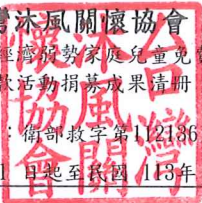 灣沐風關懷協會
經濟弱勢家庭兒童免費
款活動捐募成果清冊
：衛部救字第112136
1 日起至民國 113年
台灣沐風關懷協會